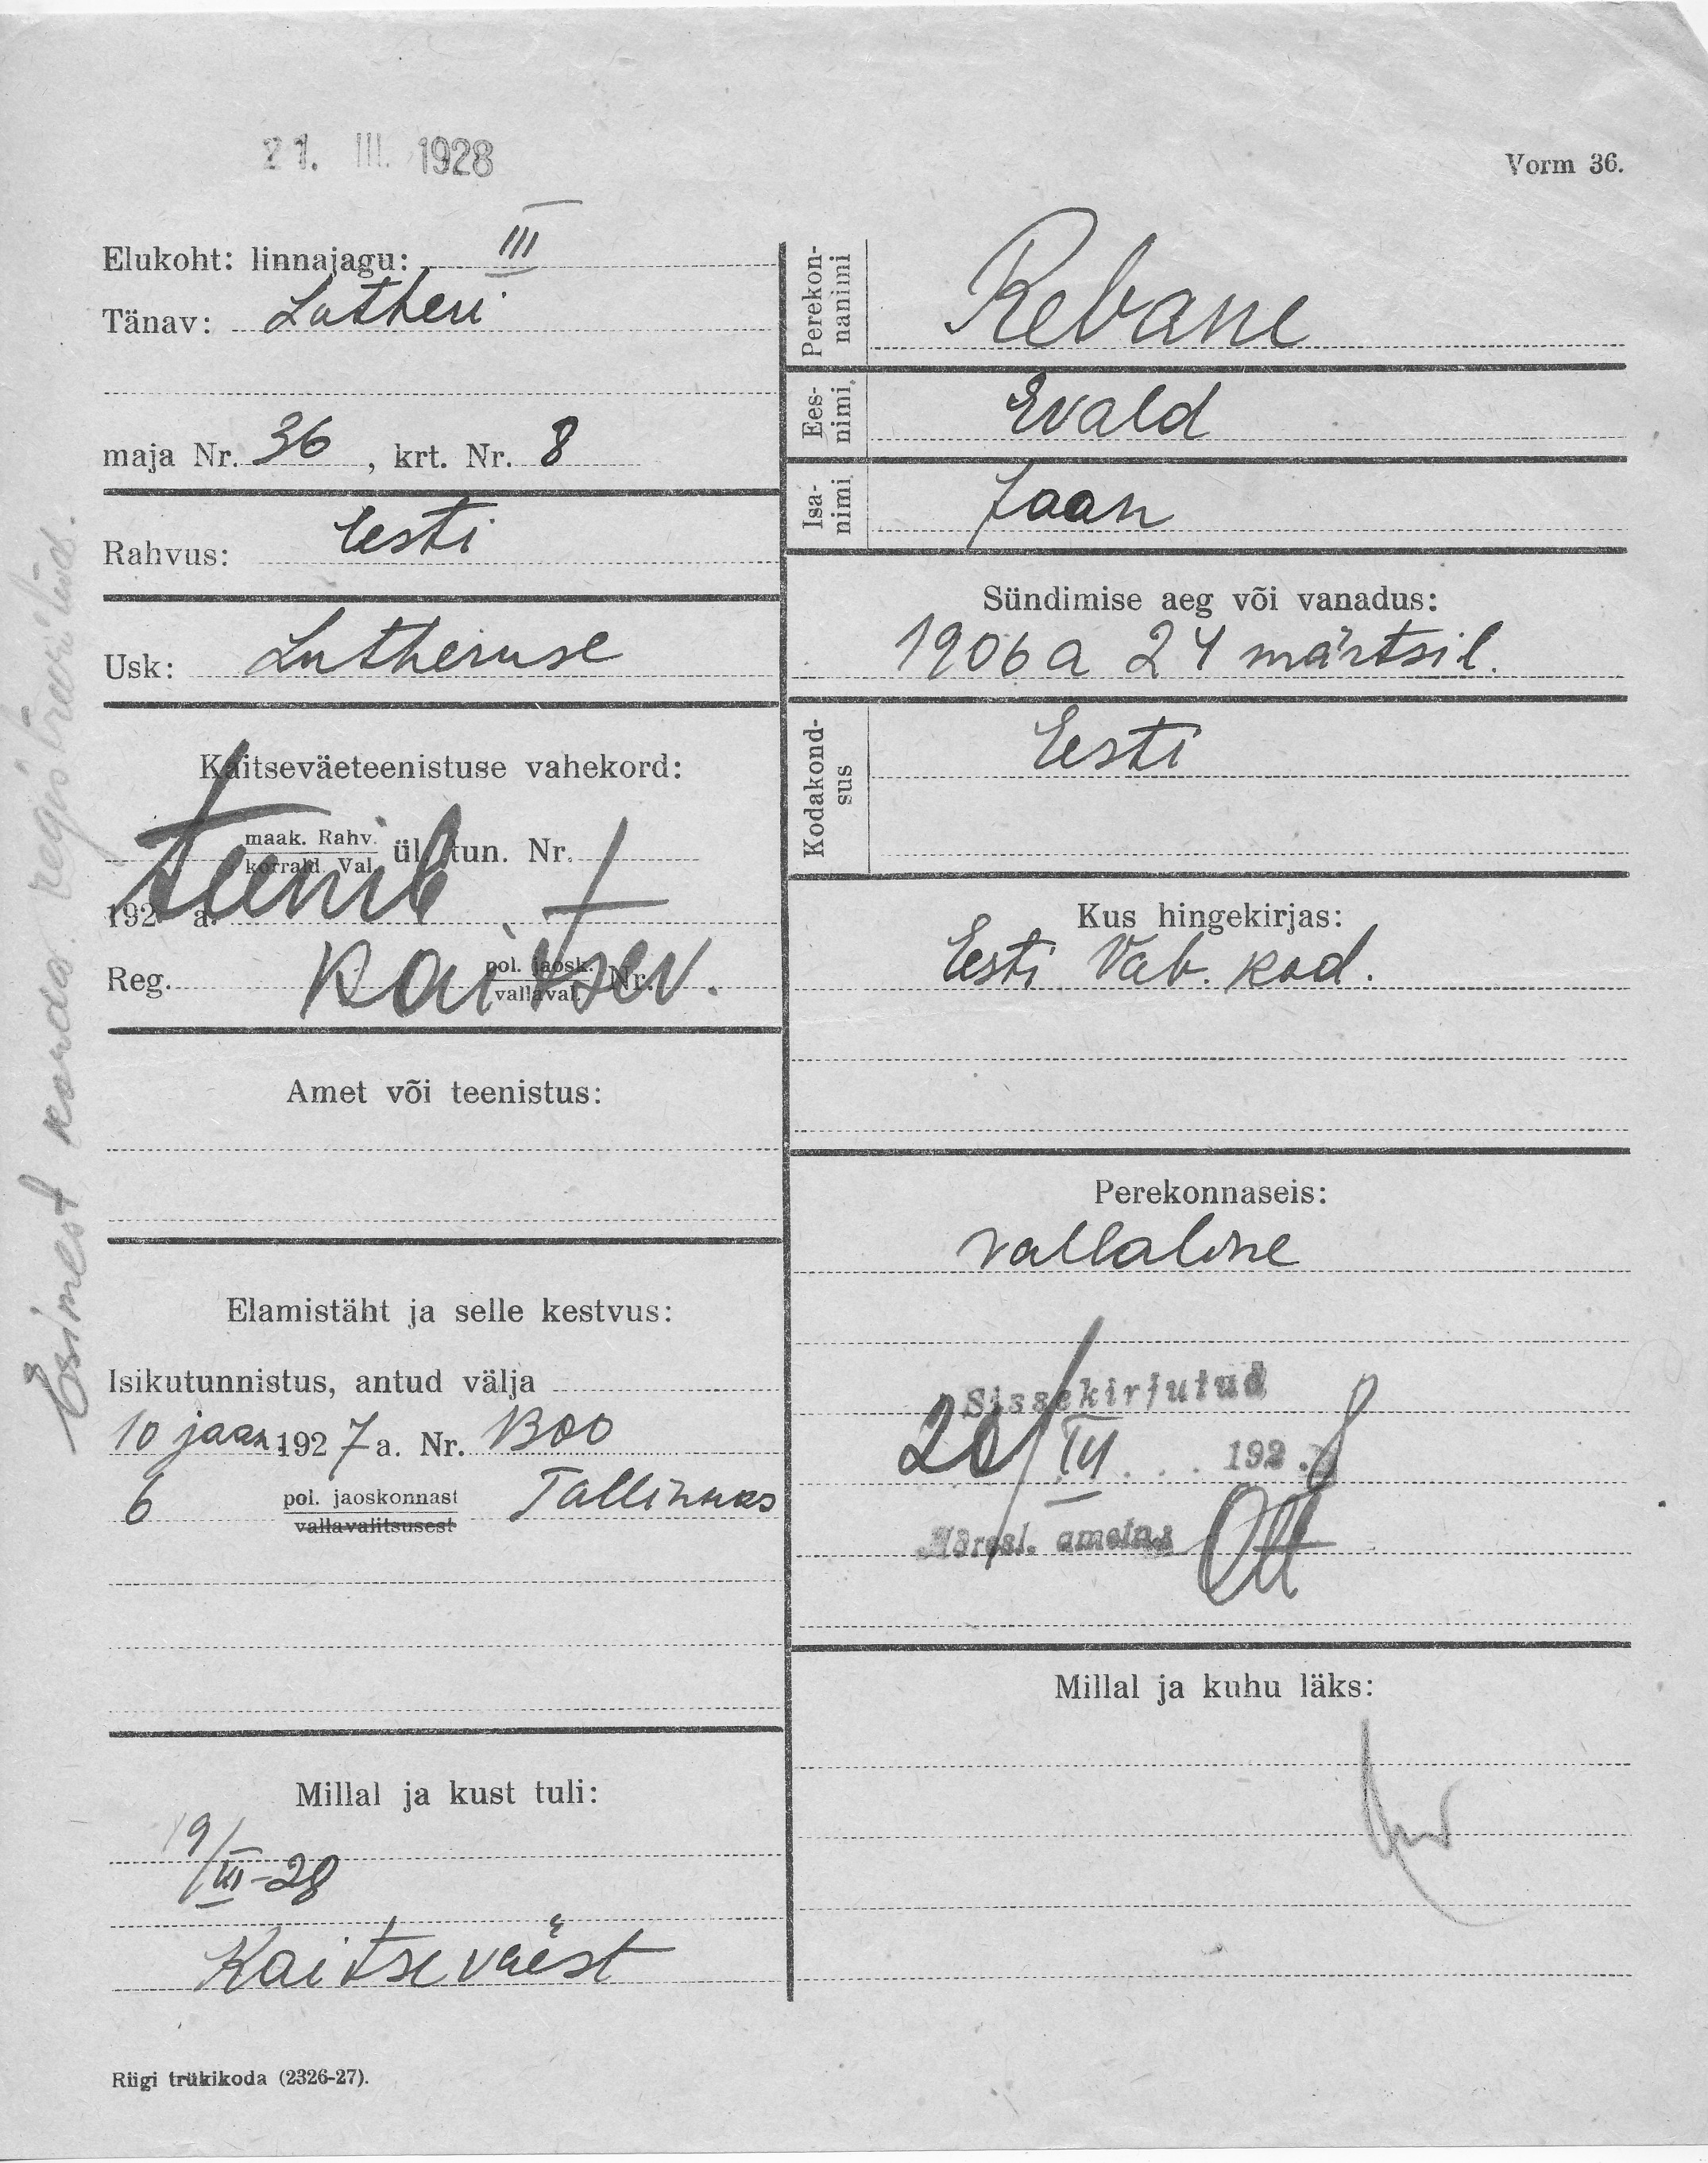 21. III. 1928
Vorm 36.
Elukoht: linnajagu: III
Tänav: Lutheri
maja Nr. 36, krt. Nr. 8
Rahvus: Eesti
Usk: Lutheruse
Kaitseväeteenistuse vahekord:
maak. Rahv.
korrald. Val. ül. tun. Nr.
Teenib
192 a.
Reg. pol. jaosk. Nr.
vallaval.
kaitsev.
Amet või teenistus:
Elamistäht ja selle kestvus:
Isikutunnistus, antud välja
10 jaan. 1927 a. Nr.
6 pol. jaoskonnast Tallinnas
vallavalitsusest
Millal ja kust tuli:
19/III-28
Kaitseväest
Riigi trükikoda (2326-27).
Esimest korda registreeritud.
Perekon-
nanimi
Rebane
Ees-
nimi
Evald
Isa-
nimi
Jaan
Sündimise aeg või vanadus:
1906 a 24 märtsil.
Kodakond-
sus
Eesti
Kus hingekirjas:
Eesti Vab. kod.
Perekonnaseis:
vallaline
Sissekirjutud
20/III 1928
Ott
Millal ja kuhu läks: